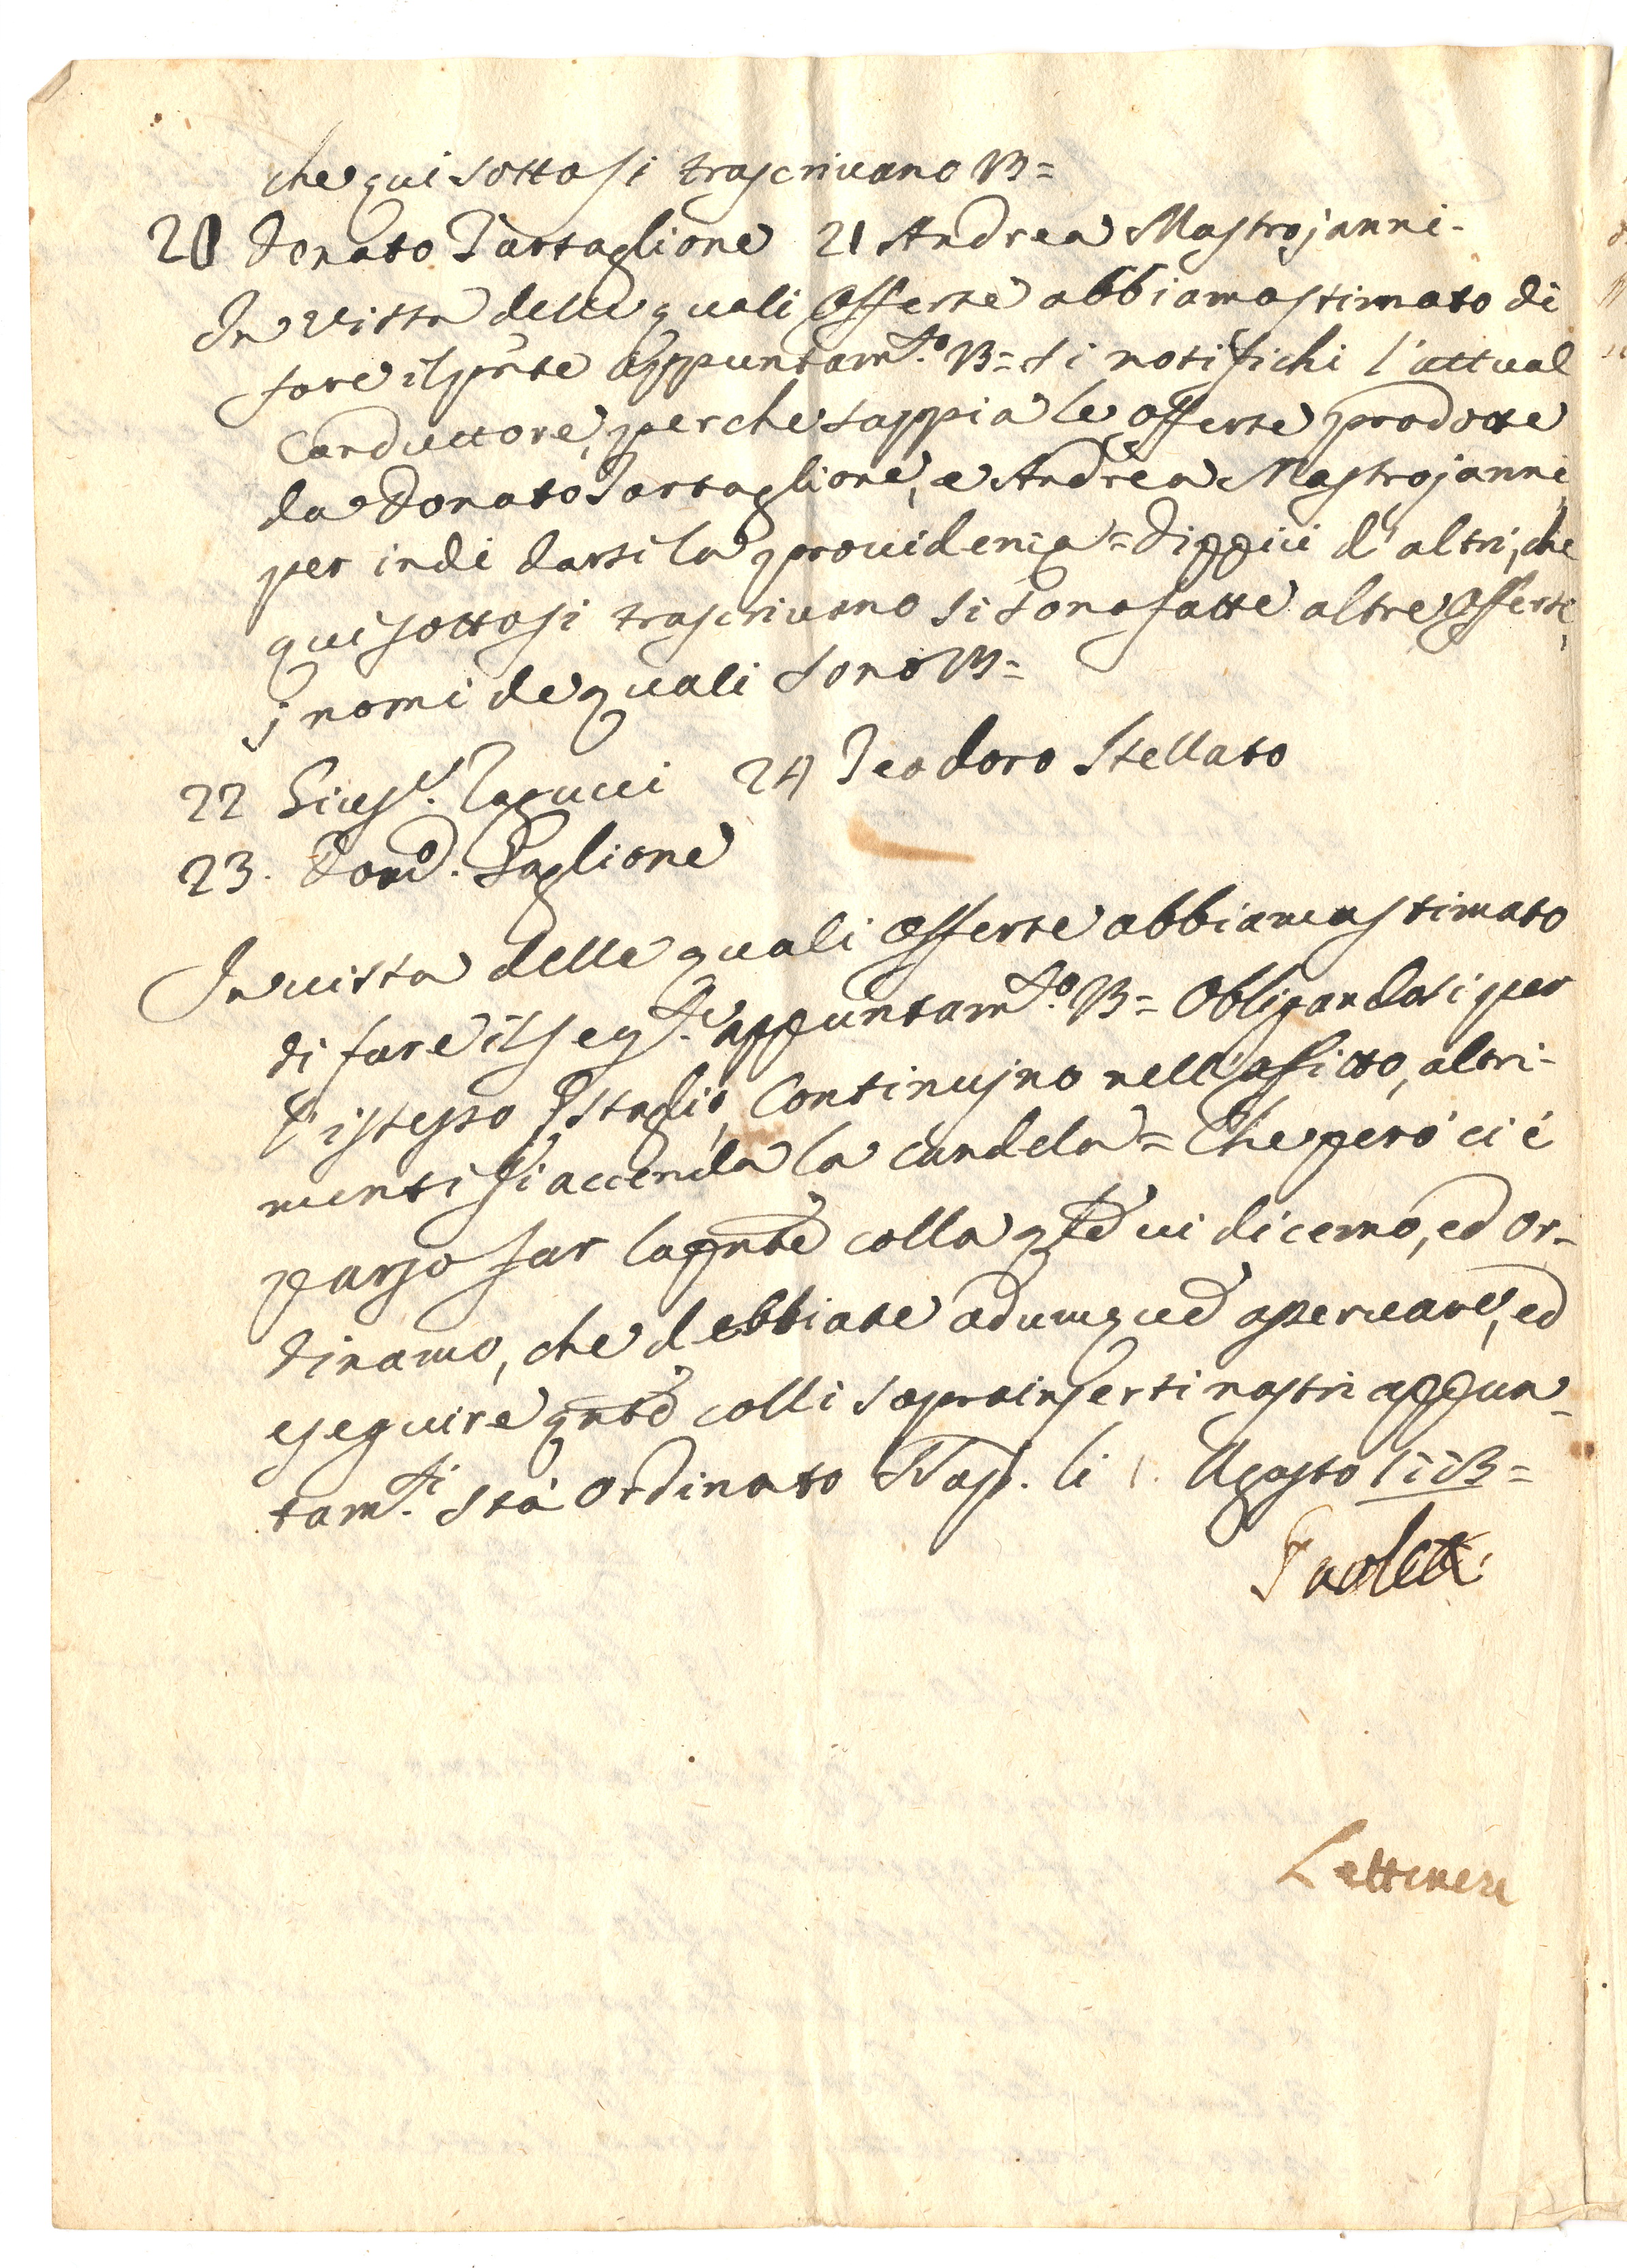 che qui sotto si trascrivano B=
20 Donato Tartaglione 21 Andrea Mastrojanni.
In vista delle quali offerte abbiamo stimato di
fare il pnte appuntam.to B= Si notifichi l'attual
Conduttore, perche sappia le offerte prodotte
da Donato Tartaglione, e Andrea Mastrojanni,
per indi darsi la providenza = Di più d'altri, che
qui sotto si trascrivono si sono fatte altre offerte,
j nomi de quali sono B=
22 Gius.e 24 Teodoro Stellato
23. Dom.o Paglione
In vista delle quali offerte abbiamo stimato
di fare il seg.te appuntam.to B= Obligandosi per
l'istesso Estaglio, Continujno nell'affitto, altri-
menti si accenda la candela = Che però ci è
parso far la pnte colla qle vi dicemo, ed or-
dinamo, che debbiate adunque osservare, ed
eseguire qnto colli soprainserti nostri appun-
tam.ti Stà ordinato Nap. li 1. Agosto
Paoletti
Lettineri